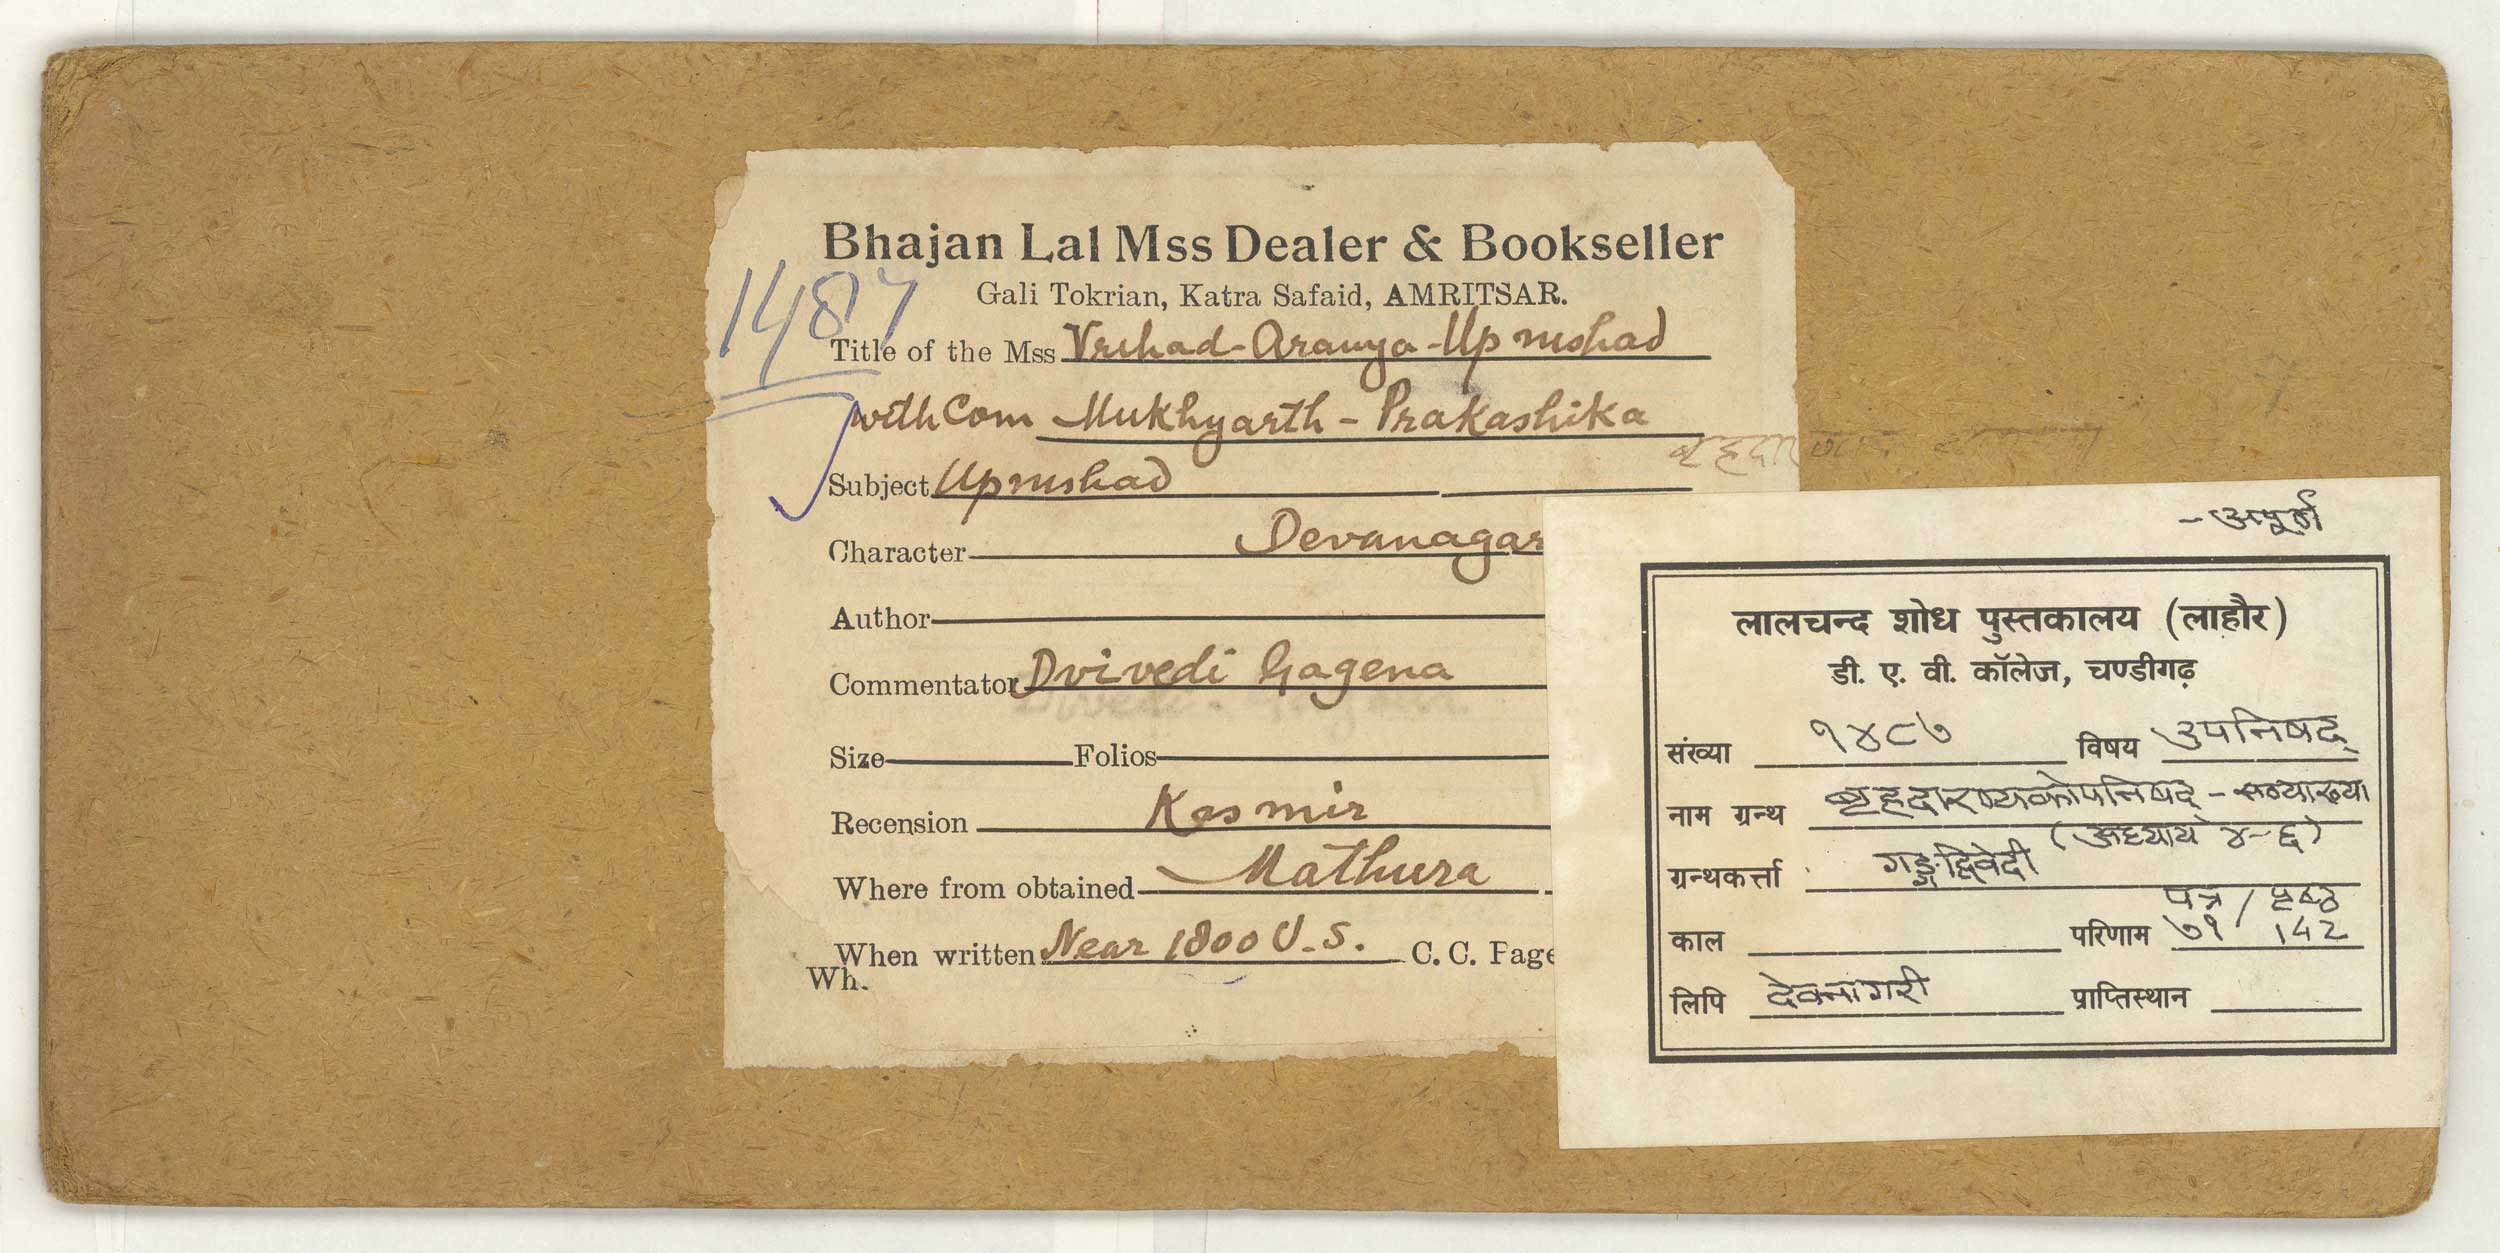 Bhajan Lal Mss Dealer & Bookseller
Gali Tokrian, Katra Safaid, AMRITSAR.
1487
Title of the Mss Vrihad-Aranya-Upnishad
with Com Mukhyarth-Prakashika
Subject Upnishad
Character Devanagar
Author
Commentator Dvivedi Gagena
Size Folios
Recension Kasmir
Where from obtained Mathura
When written Near 1800 V.S. C. C. Page
Wh.
- अपूर्ण
लालचन्द शोध पुस्तकालय (लाहौर)
डी. ए. वी. कॉलेज, चण्डीगढ़
संख्या १४८७ विषय उपनिषद्
नाम ग्रन्थ बृहदारण्यकोपनिषद् - सव्याख्या
(अध्याय ४-६)
ग्रन्थकर्त्ता गङ्गद्विवेदी
पत्र / पृष्ठ
काल परिणाम ७१ / 142
लिपि देवनागरी प्राप्तिस्थान